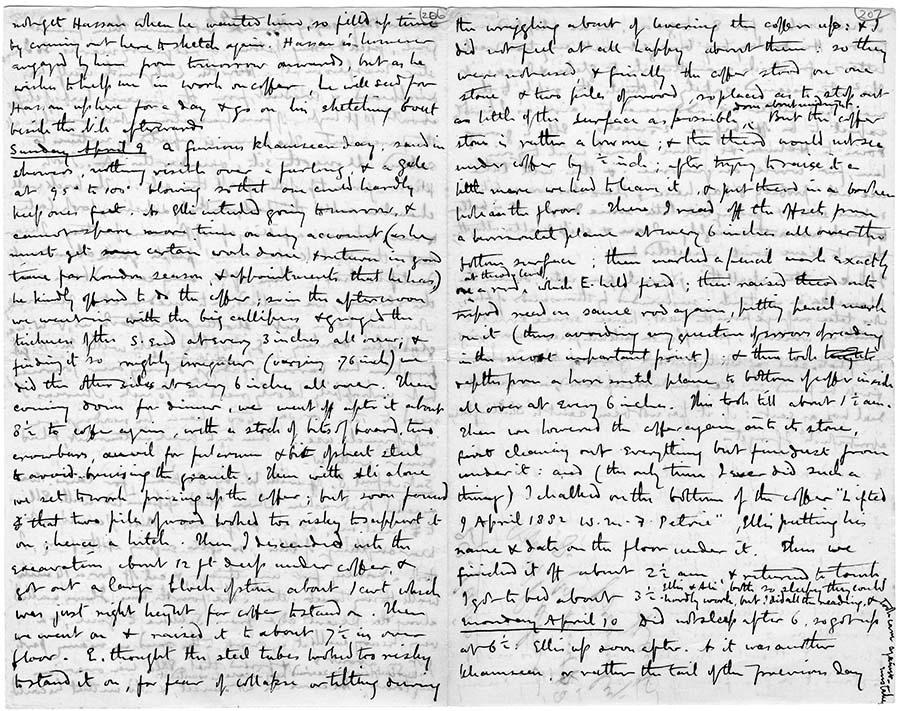 206
not get Hassan when he wanted him, so filled up time
by coming out here to sketch again." Hassan is however
engaged by him from tomorrow onwards, but as he
wishes to help me in work on coffer, he will send for
Hassan up here for a day & go on his sketching bout
beside the Nile afterwards
Sunday April 9 a furious khamseen day. sand in
showers, nothing visible over a furlong, & a gale
at 95° to 100° blowing so that one could hardly
keep ones feet. As Ellis intended going tomorrow, &
cannot spare more time on any account (as he
must get some certain work done & return in good
time for London season & appointments that he has)
he kindly offered to do the coffer; so in the afternoon
we went in with the big callipers & gauged the
thickness of the S. end at every 3 inches all over, &
finding it so roughly irregular (varying .76 inch) we
did the other sides at every 6 inches all over. Then
coming down for dinner, we went off after it about
8½ to coffer again, with a stock of bits of board, two
crowbars, anvil for fulcrum & bit of sheet steel
to avoid bruising the granite. Then with Ali alone
we set to work prizing up the coffer, but soon found
that two piles of wood looked too risky to support it
on; hence a hitch. Then I descended into the
excavation about 12 ft deep under coffer, &
got out a large block of stone about 1 cwt which
was just right height for coffer to stand on. Then
we went on & raised it to about 7½ in over
floor. E. thought the steel tubes looked too risky
to stand it on, for fear of collapse or tilting during
207
the wriggling about of levering the coffer up: & I
did not feel at all happy about them: so they
were not used, & finally the coffer stood on one
stone & two piles of wood, so placed as to stop out
as little of the surface as possible, done about midnight. But the coffer
stone is rather a low one, & the theod would not see
under coffer by ½ inch; after trying to raise it a
little more we had to leave it, & put theod in a broken
hole in the floor. Then I read off the offsets from
a horizontal plane at every 6 inches all over the
bottom surface; then marked a pencil mark exactly
(at theody level) on a rod, which E. held fixed; then raised theod onto
tripod need on same rod again, putting pencil mark
on it (thus avoiding any question of errors of reading
in the most important point). & then took
depths from a horizontal plane to bottom of coffer inside
all over at every 6 inches. This took till about 1½ am.
Then we lowered the coffer again onto its stone,
first clearing out everything but fine dust from
under it: and (the only time I ever did such a
thing) I chalked on the bottom of the coffer "Lifted
9 April 1882 W. M. F. Petrie", Ellis putting his
name & date on the floor under it. Thus we
finished it off about 2½ am, & returned to tomb
I got to bed about 3½ Ellis & Ali both so sleepy they could
hardly work, but I did all the reading, &
took care against mistakes
Monday April 10 Did not sleep after 6, so got up
at 6½: Ellis up soon after. As it was another
khamseen, or rather the tail of the previous day